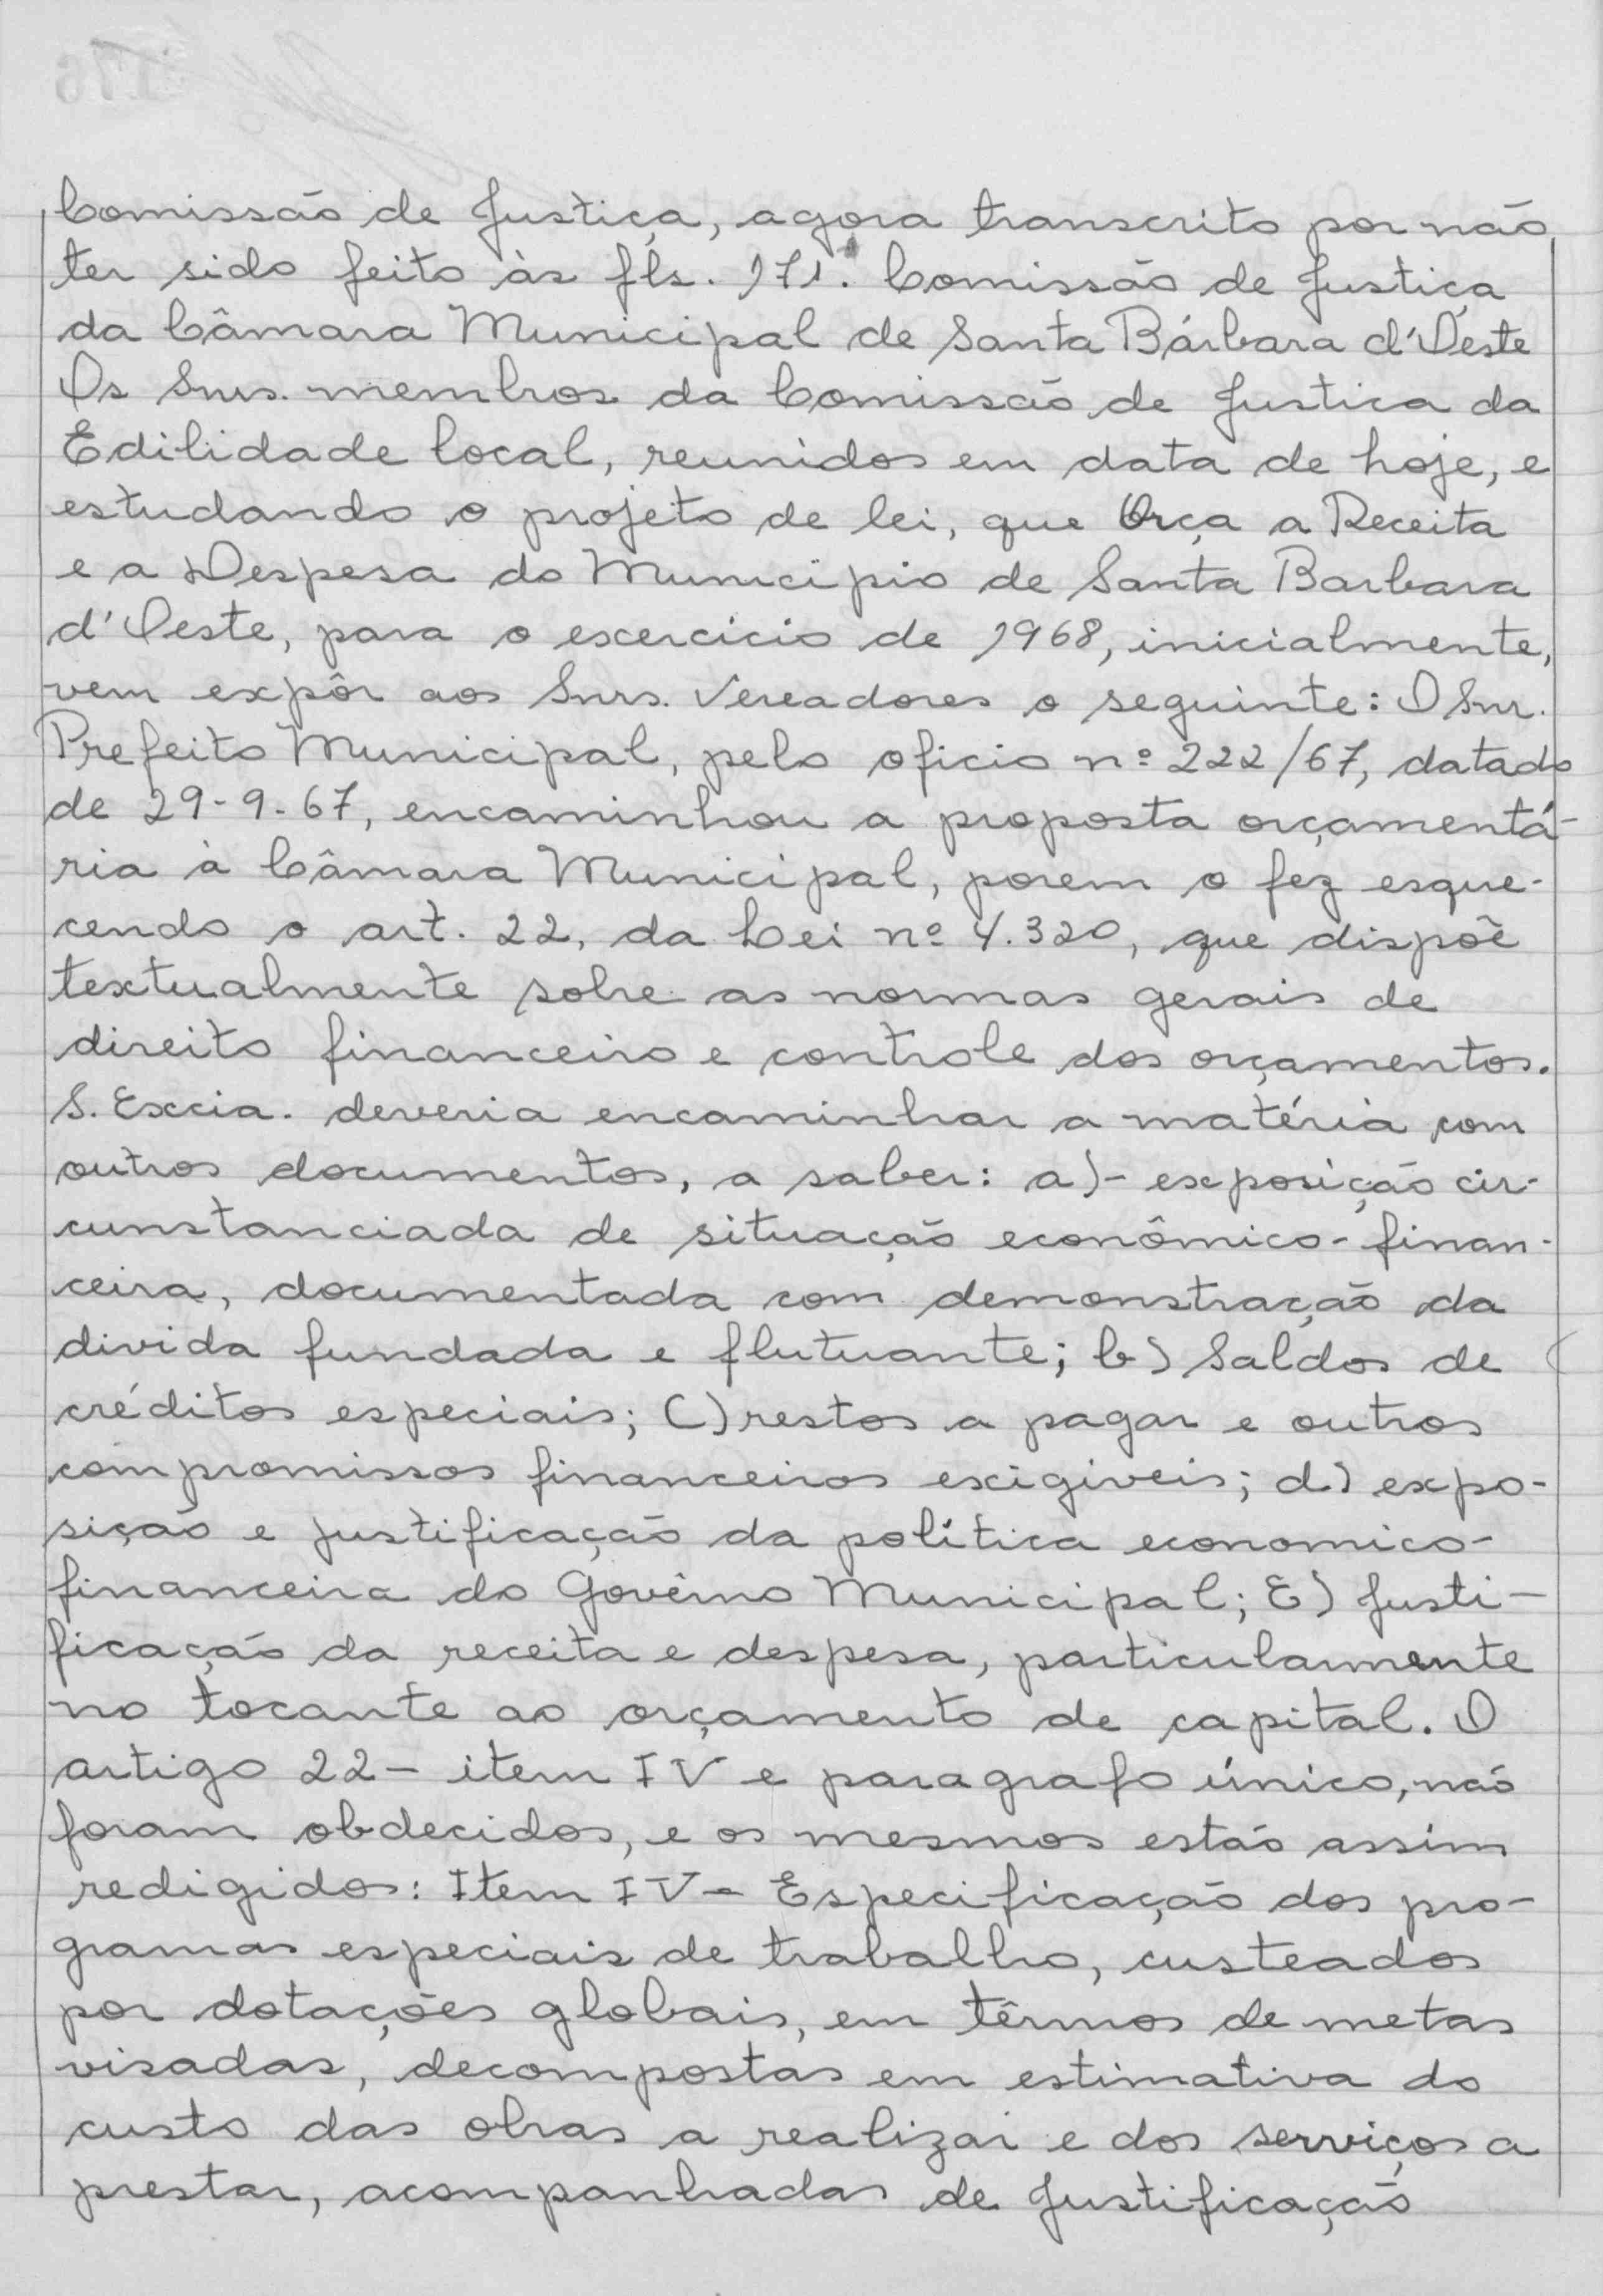 Comissão de Justiça, agora transcrito por não
ter sido feito às fls. 171. Comissão de Justiça
da Câmara Municipal de Santa Bárbara d'Oeste
Os Snrs. membros da Comissão de Justica da
Edilidade local, reunidos em data de hoje, e
estudando o projeto de lei, que Orça a Receita
e a Despesa do Municipio de Santa Barbara
d'Oeste, para o exercicio de 1968, inicialmente,
vem expôr aos Snrs. Vereadores o seguinte: O Snr.
Prefeito Municipal, pelo oficio nº 222/67, datado
de 29-9-67, encaminhou a proposta orçamentá-
ria à Câmara Municipal, porem o fez esque-
cendo o art. 22, da Lei nº 4.320, que dispõe
textualmente sobre as normas gerais de
direito financeiro e controle dos orçamentos.
S. Excia. deveria encaminhar a matéria com
outros documentos, a saber: a)- exposição cir-
cunstanciada de situação econômico-finan-
ceira, documentada com demonstração da
divida fundada e flutuante; b) Saldos de
créditos especiais; C) restos a pagar e outros
compromissos financeiros exigiveis; d) expo-
sição e justificação da política economico-
financeira do Govêrno Municipal; E) Justi-
ficação da receita e despesa, particularmente
no tocante ao orçamento de capital. O
artigo 22- item IV e paragrafo único, não
foram obdecidos, e os mesmos estão assim
redigidos: Item IV- Especificação dos pro-
gramas especiais de trabalho, custeados
por dotações globais, em têrmos de metas
visadas, decompostas em estimativa do
custo das obras a realizar e dos serviços a
prestar, acompanhadas de Justificação